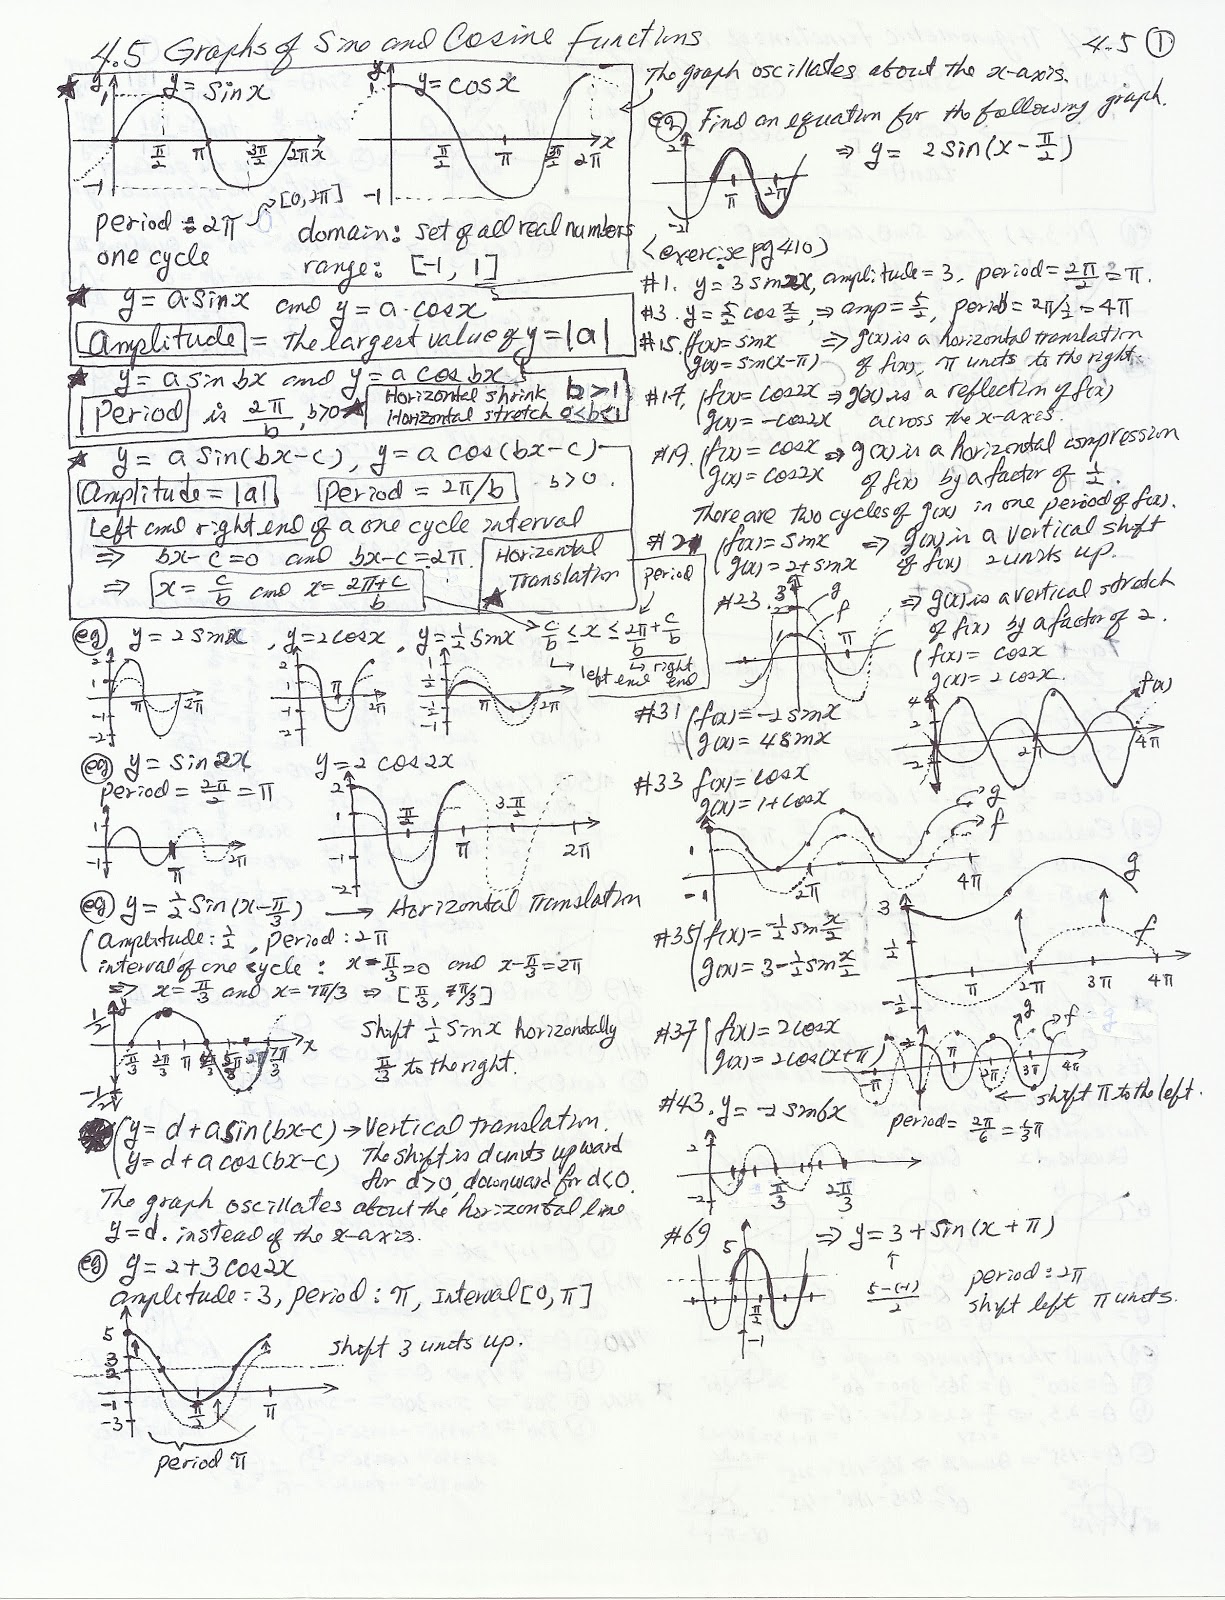 4.5 Graphs of Sine and Cosine Functions
4.5 ①
y
1
y = sinx
π/2
π
3π/2
2π x
-1
[0, 2π]
period = 2π
one cycle
y
1
y = cosx
π/2
π
3π/2
2π
x
-1
domain: set of all real numbers
range: [-1, 1]
★ y = a·sinx and y = a·cosx
Amplitude = The largest value of y = |a|
★ y = a sin bx and y = a cos bx
Period is 2π/b, b>0 ★ Horizontal shrink b > 1
Horizontal stretch 0<b<1
★ y = a sin(bx-c), y = a cos(bx-c)
Amplitude = |a| Period = 2π/b b>0.
Left and right end of a one cycle interval
⇒ bx-c=0 and bx-c=2π.
⇒ x = c/b and x = (2π+c)/b
Horizontal
Translation ★
period
c/b ≤ x ≤ 2π/b + c/b
left end
right end
eg) y = 2 sinx, y = 2cosx, y = 1/2 sinx
2
1
-1
-2
π
2π
2
1
-1
-2
π
2π
1
1/2
-1/2
-1
2π
eg) y = sin 2x y = 2 cos2x
period = 2π/2 = π
1
-1
π
2π
2
1
-1
-2
π/2
π
3π/2
2π
eg) y = 1/2 sin(x-π/3) → Horizontal Translation
Amplitude: 1/2, period: 2π
interval of one cycle: x-π/3=0 and x-π/3=2π
⇒ x = π/3 and x = 7π/3 ⇒ [π/3, 7π/3]
1/2
y
-1/2
π/3
2π/3
π
4π/3
2π
7π/3
x
shift 1/2 sinx horizontally
π/3 to the right.
y = d + a sin(bx-c) → Vertical translation.
y = d + a cos(bx-c) The shift is d units upward
for d>0, downward for d<0.
The graph oscillates about the horizontal line
y=d. instead of the x-axis.
eg) y = 2+3cos2x
amplitude: 3, period: π, interval [0, π]
5
3
2
-1
-3
π/2
π
period π
shift 3 units up.
The graph oscillates about the x-axis.
eg) Find an equation for the following graph.
⇒ y = 2sin(x - π/2)
2
-2
π
2π
(exercise pg 410)
#1. y = 3 sin2x, amplitude = 3, period = 2π/2 = π.
#3. y = 5/2 cos x/2, ⇒ amp = 5/2, period = 2π/½ = 4π
#15. f(x) = sinx ⇒ g(x) is a horizontal translation
g(x) = sin(x-π) of f(x), π units to the right.
#17, f(x) = cos2x ⇒ g(x) is a reflection of f(x)
g(x) = -cos2x across the x-axis.
#19. f(x) = cosx ⇒ g(x) is a horizontal compression
g(x) = cos2x of f(x) by a factor of 1/2.
There are two cycles of g(x) in one period of f(x).
#21 f(x) = sinx ⇒ g(x) is a vertical shift
g(x) = 2+sinx of f(x) 2 units up.
#23.
3
2
1
g
f
π
⇒ g(x) is a vertical stretch
of f(x) by a factor of 2.
f(x) = cosx
g(x) = 2cosx.
#31 f(x) = -2sinx
g(x) = 4sinx
4
2
-2
2π
4π
f(x)
#33 f(x) = cosx
g(x) = 1+cosx
1
-1
2π
4π
g
f
#35 f(x) = -1/2 sin x/2
g(x) = 3-1/2 sin x/2
3
1/2
-1/2
π
2π
3π
4π
g
f
#37 f(x) = 2cosx
g(x) = 2cos(x+π)
-π
π
2π
3π
4π
g
f
← shift π to the left.
#43. y = -2 sin6x period = 2π/6 = 1/3π
2
-2
π/3
2π/3
#69 ⇒ y = 3 + sin(x+π)
5
-1
π/2
(5-(-1))/2
period: 2π
shift left π units.